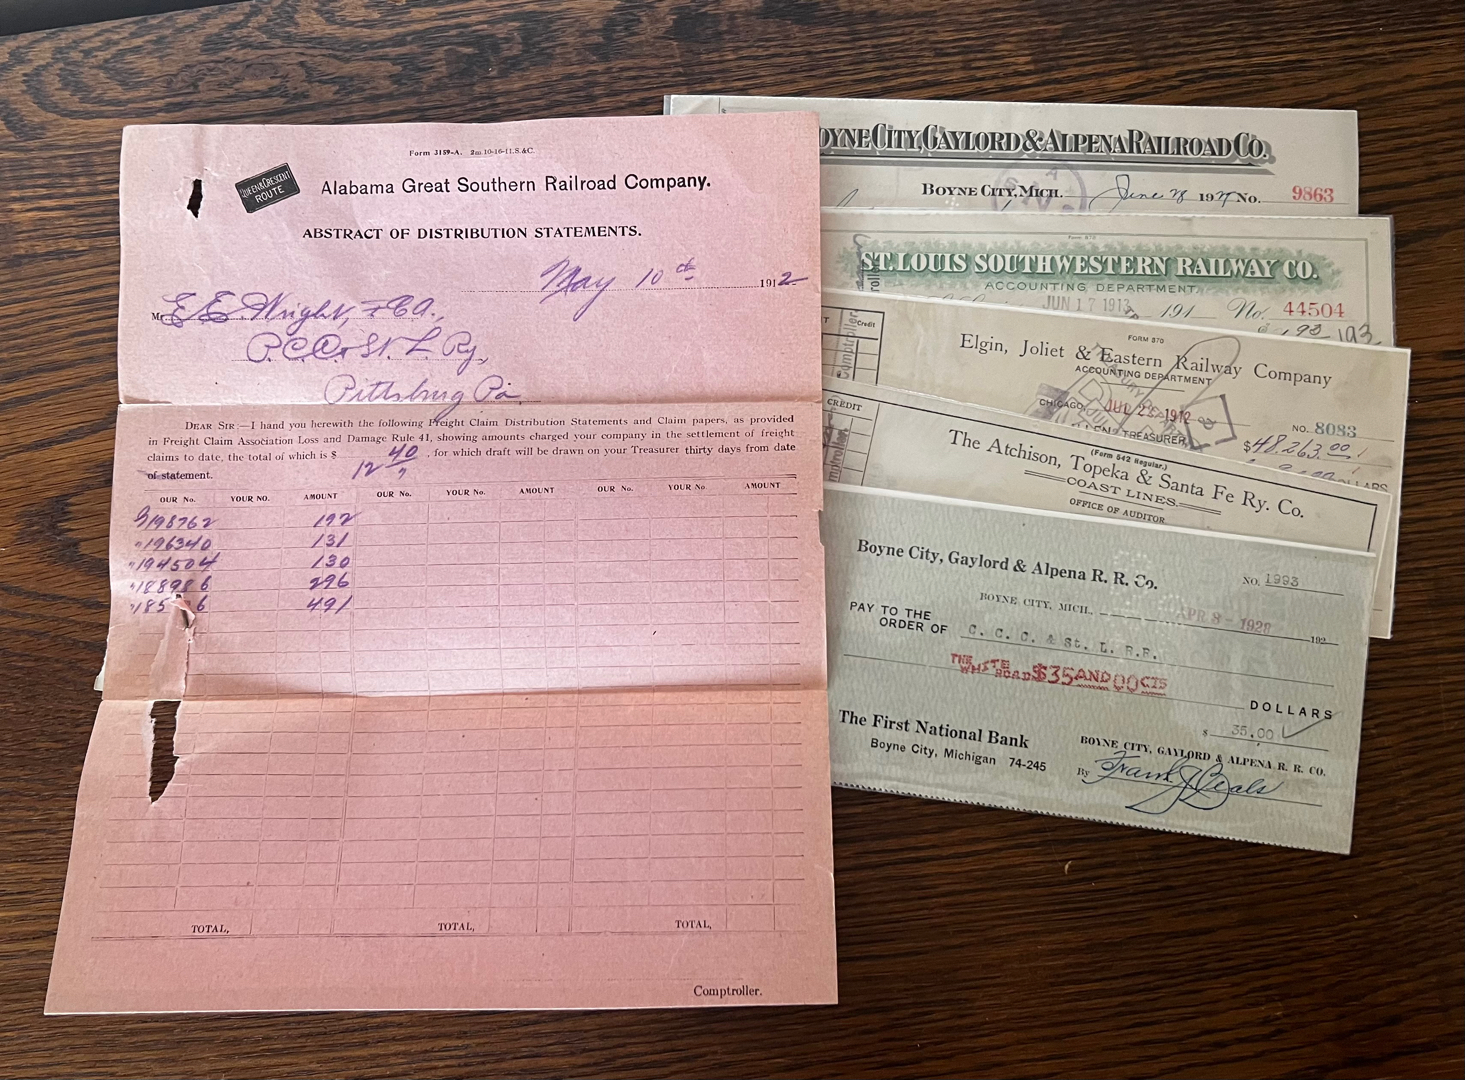 Form 3159-A. 2m 10-16-11.S.&C.
QUEEN & CRESCENT
ROUTE
Alabama Great Southern Railroad Company.
ABSTRACT OF DISTRIBUTION STATEMENTS.
May 10th 1912
Mr. E E Wright, F C A.,
P. C. C. & St. L Ry,
Pittsburg Pa
DEAR SIR:—I hand you herewith the following Freight Claim Distribution Statements and Claim papers, as provided
in Freight Claim Association Loss and Damage Rule 41, showing amounts charged your company in the settlement of freight
claims to date, the total of which is $ 12 40, for which draft will be drawn on your Treasurer thirty days from date
of statement.
OUR No. YOUR NO. AMOUNT OUR No. YOUR No. AMOUNT OUR No. YOUR No. AMOUNT
198762 192
"196340 131
"194504 130
"188986 296
"185 6 491
TOTAL, TOTAL, TOTAL,
Comptroller.
OYNE CITY, GAYLORD & ALPENA RAILROAD CO.
BOYNE CITY, MICH. June 28 192 No. 9863
Form 870
ST. LOUIS SOUTHWESTERN RAILWAY CO.
ACCOUNTING DEPARTMENT
JUN 17 1913 191 No. 44504
193
T Credit
Comptroller
FORM 370
Elgin, Joliet & Eastern Railway Company
ACCOUNTING DEPARTMENT
CHICAGO, JUL 23 1912 NO. 8083
TREASURER, $48,263.00
LARS
CREDIT
(Form 542 Regular.)
The Atchison, Topeka & Santa Fe Ry. Co.
COAST LINES.
OFFICE OF AUDITOR
Boyne City, Gaylord & Alpena R. R. Co. NO. 1993
BOYNE CITY, MICH., APR 8 - 1928 192
PAY TO THE
ORDER OF C. C. C. & St. L. R.R.
THE WHITE ROAD $35 AND 00 CTS
DOLLARS
$ 35.00
The First National Bank
Boyne City, Michigan 74-245
BOYNE CITY, GAYLORD & ALPENA R. R. CO.
By Frank J Beals